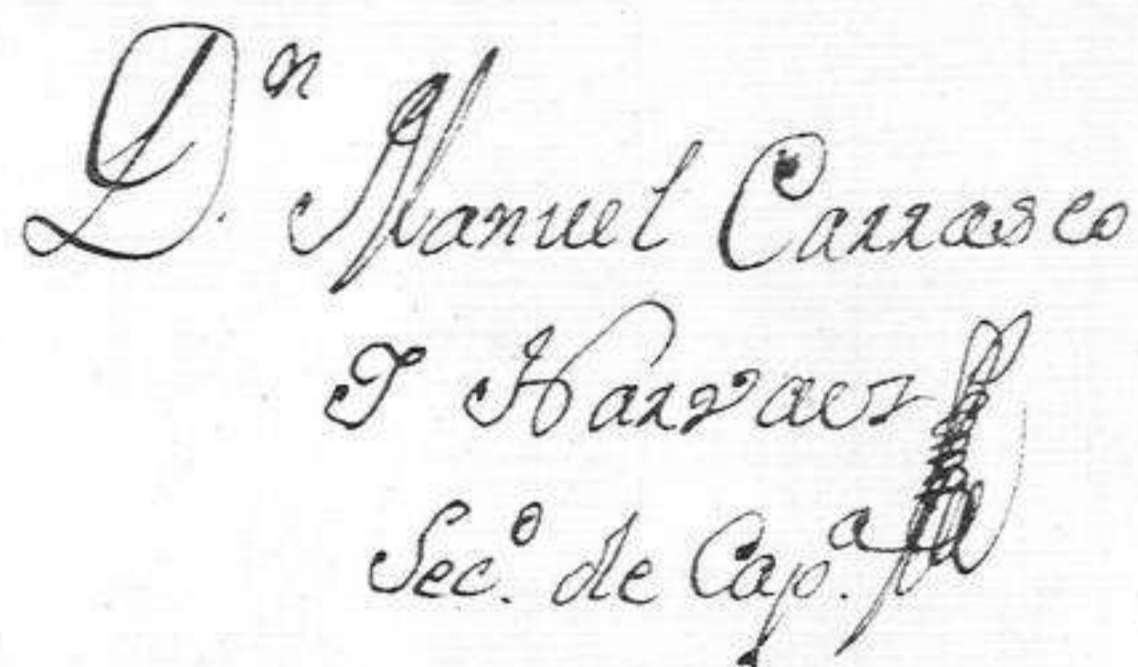 D.ⁿ Manuel Carrasco
Y Narvaez
Sec.º de Cap.ª